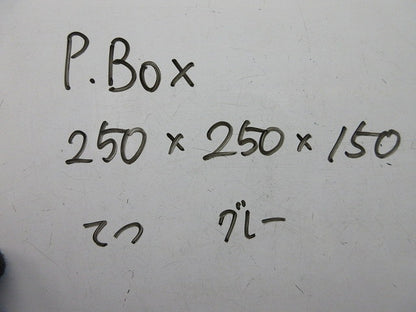 P.Box
250 × 250 × 150
てつ グレー